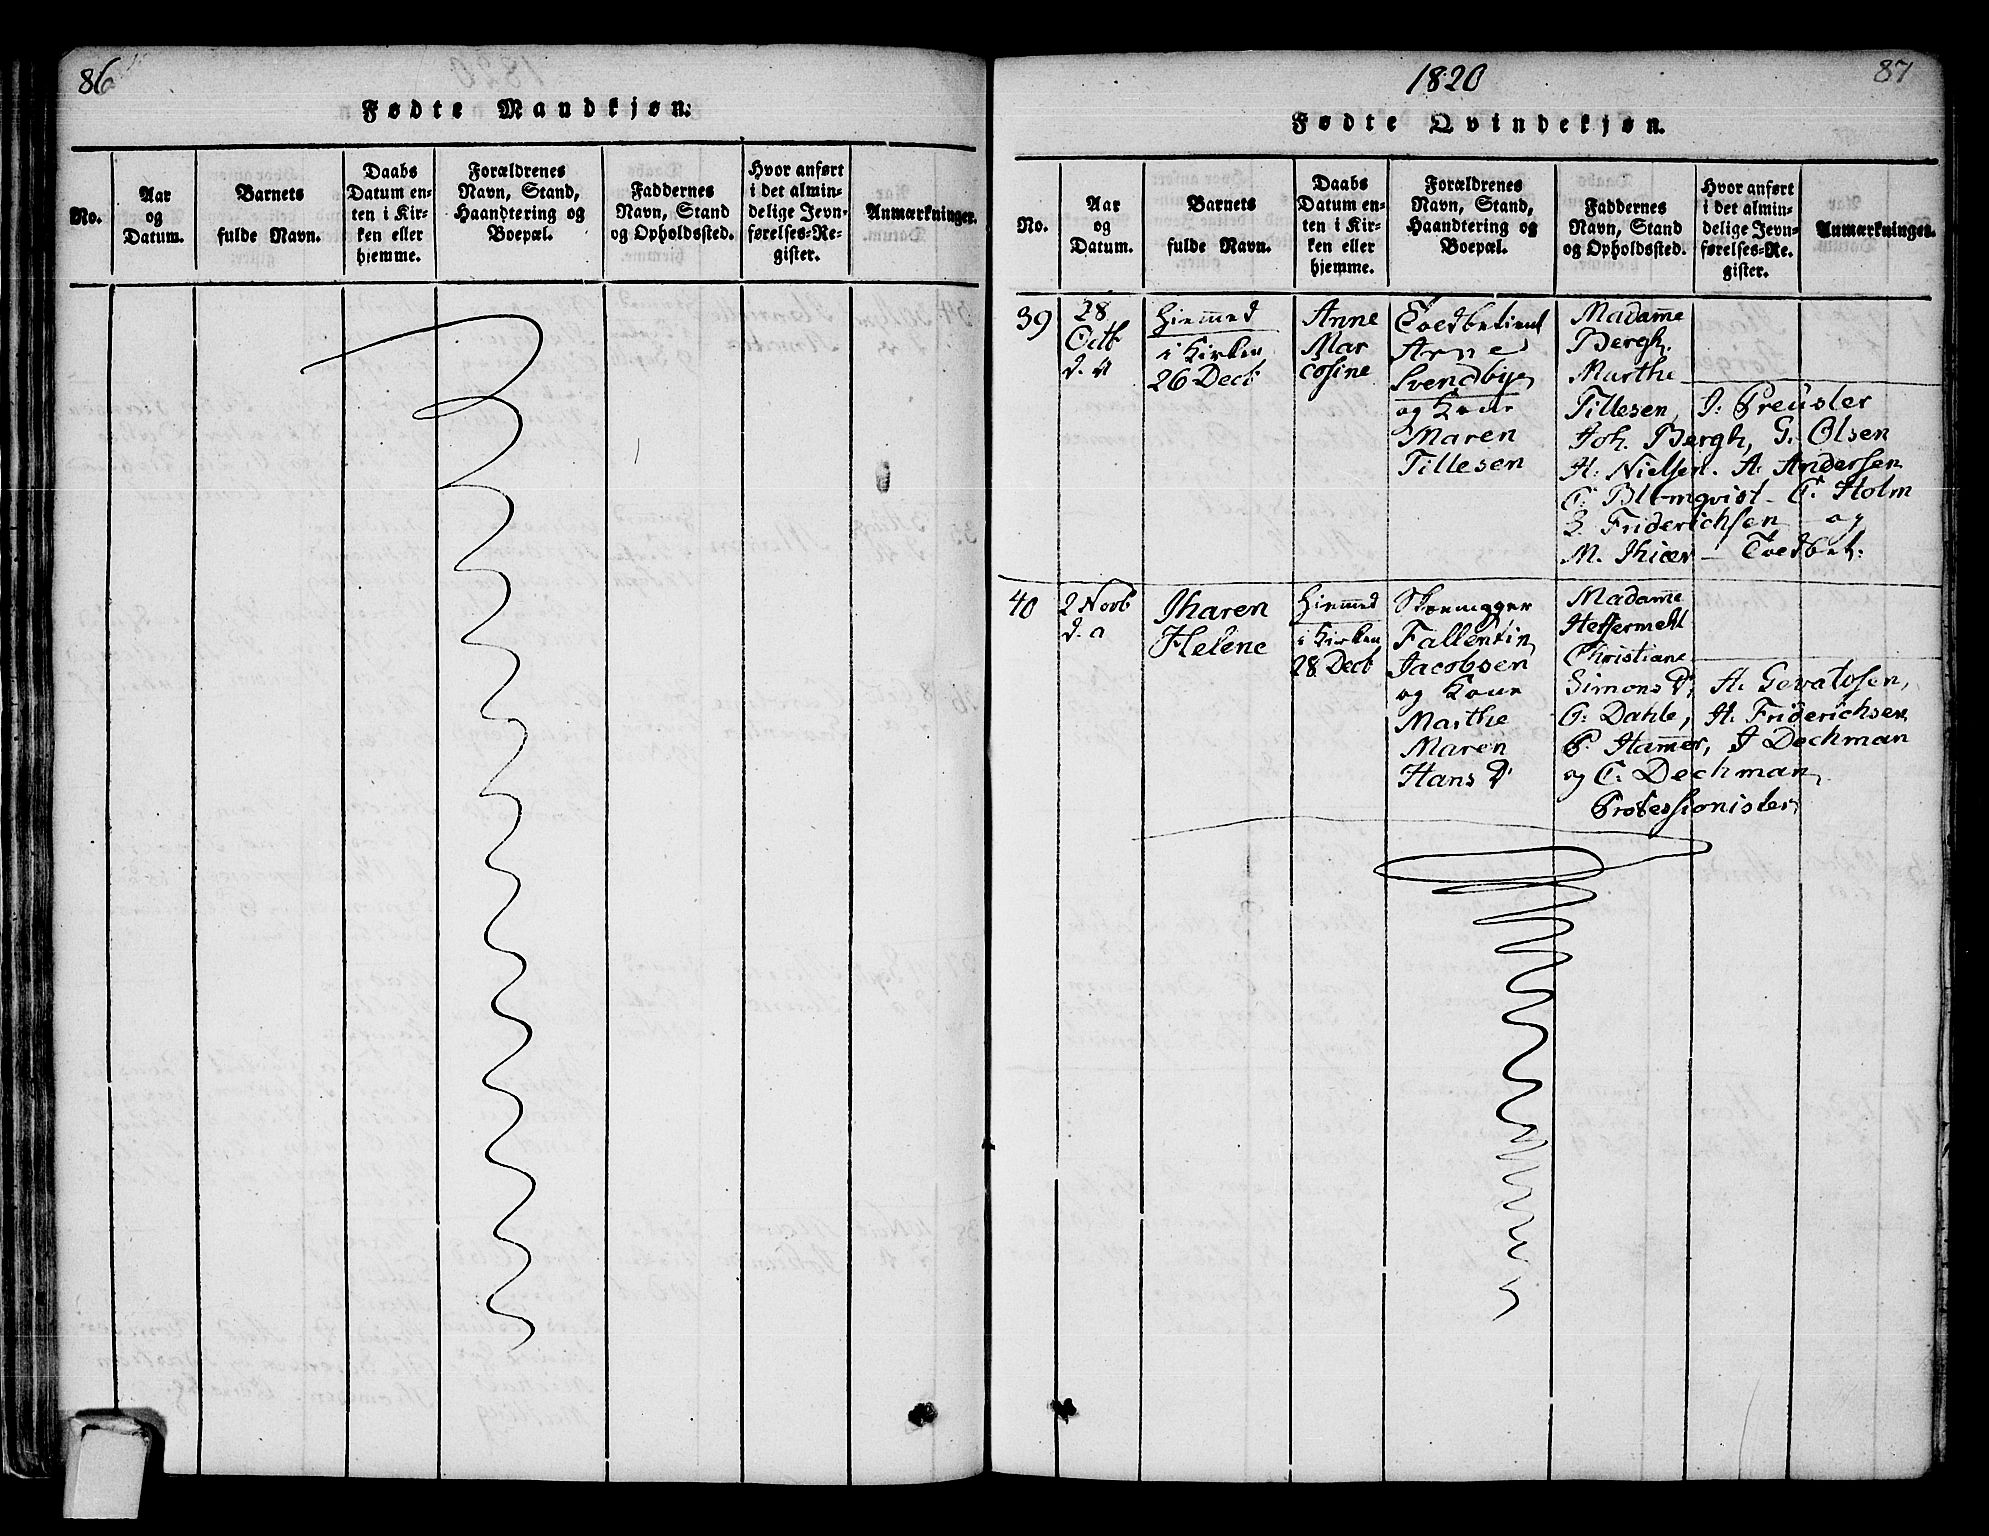 86
Fødte Mandkjøn.
No.
Aar
og
Datum.
Barnets
fulde Navn.
Daabs
Datum en-
ten i Kir-
ken eller
hjemme.
Forældrenes
Navn, Stand,
Haandtering og
Boepæl.
Faddernes
Navn, Stand
og Opholdssted.
Hvor anført
i det almin-
delige Jevn-
førelses-Re-
gister.
Anmærkninger.
1820
87
Fødte Qvindekjøn.
No.
Aar
og
Datum.
Barnets
fulde Navn.
Daabs
Datum en-
ten i Kir-
ken eller
hjemme.
Forældrenes
Navn, Stand,
Haandtering og
Boepæl.
Faddernes
Navn, Stand
og Opholdssted.
Hvor anført
i det almin-
delige Jevn-
førelses-Re-
gister.
Anmærkninger.
39
28
Octb
d. a
Hiemmed
i Kirken
26 Decb
Anne
Mar
cosine
Toldbetient
Arne
Svendbye
og Kone
Maren
Tillesen
Madame
Bergh.
Marthe
Tillesen, J: Preusler
Joh. Bergh, G. Olsen
H. Nielsen. A. Andersen
C. Blomqvist - C. Holm
Friderichsen og
M. Thiær - Toldbet.
40
2 Novb
d. a
Tharen
Helene
Hiemmed
i Kirken
28 Decb
Skomager
Fallentin
Jacobsen
og Kone
Marthe
Maren
Hans D.
Madame
Heffermehl
Christiane
Simons D. A. Gevaldsen,
C. Dahle, H. Friderichsen
P. Hamer, J Dechman
og C. Dechman
Professionister